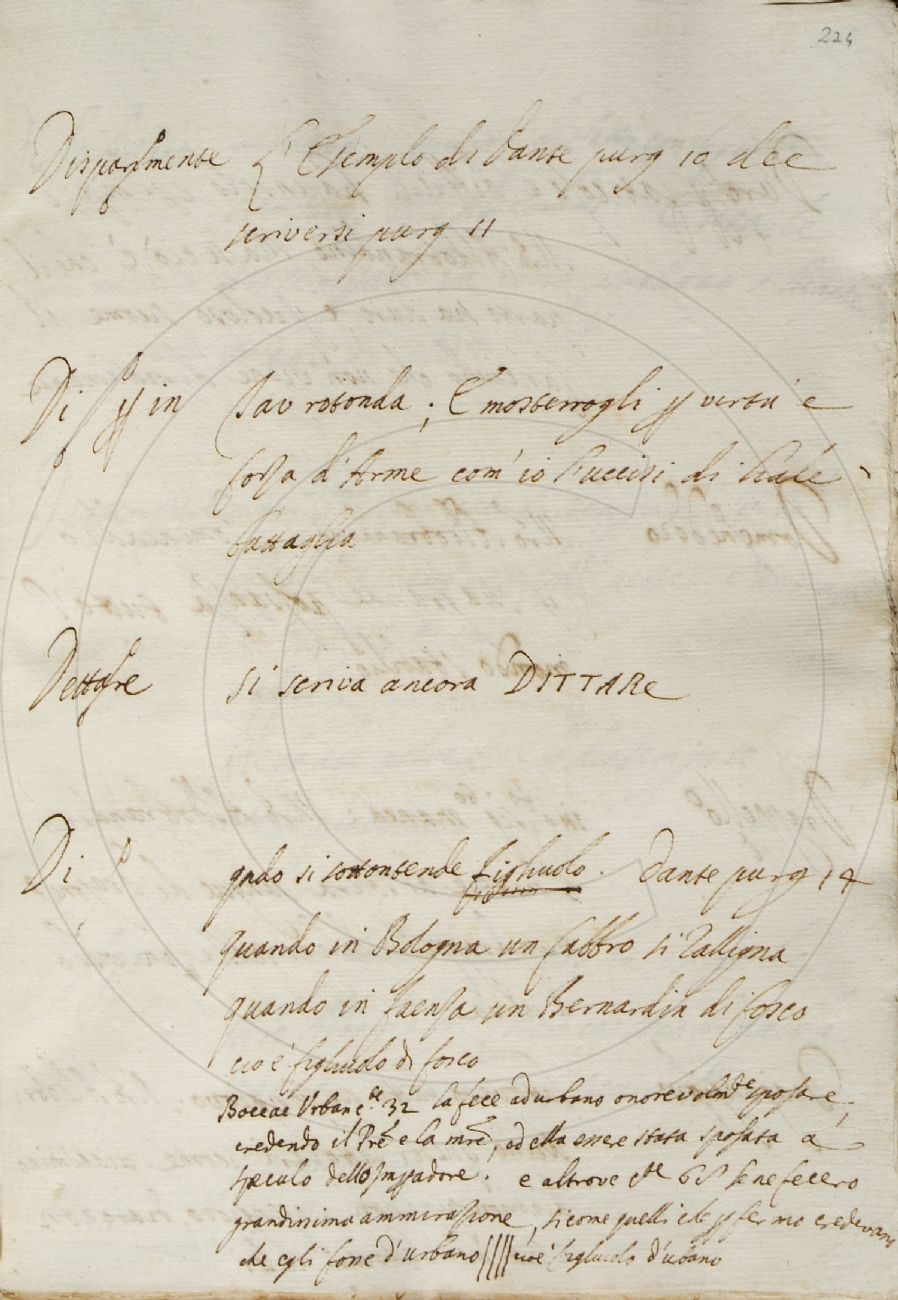 224
Disparmente L'Esemplo di Dante purg 10 dee
scriversi purg 11
Di p in Tav rotonda; E mosterrogli p vertù e
forza d'Arme com' io l'uccisi di leale
battaglia
Dettare si scriva ancora DITTARE
Di qndo si sottontende figliuolo. Dante purg 14
quando in Bologna un fabbro si ralligna
quando in faenza un Bernardin di fosco
cio è figliuolo di fosco
Boccac Urban c.te 32 la fece ad urbano onorevolmte sposare,
credendo il Pre e la mre, ed ella essere stata sposata a
speculo dello Impadore. e altrove cte 65 se ne fecero
grandissima ammirazione, si come quelli che p fermo credevano
che egli fosse d'urbano cioè figliuolo d'urbano